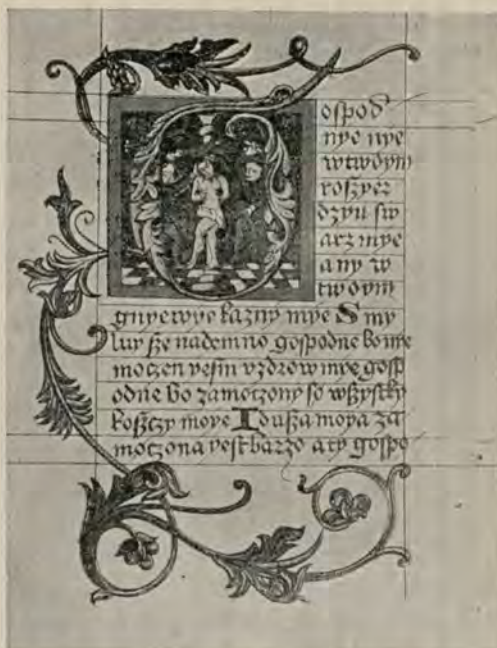 Gospod
nye nye
w twoym
roszyer
dzyu sw
arz mye
any w
twoym
gnyewye kazny mye Smy
luy sze nademno gospodne bo nye
moczen yesm uzdrow mye gosp
odne bo zamoczony so wszystky
koszczy moye I dusza moya za
moczona yest barzo a ty gospo